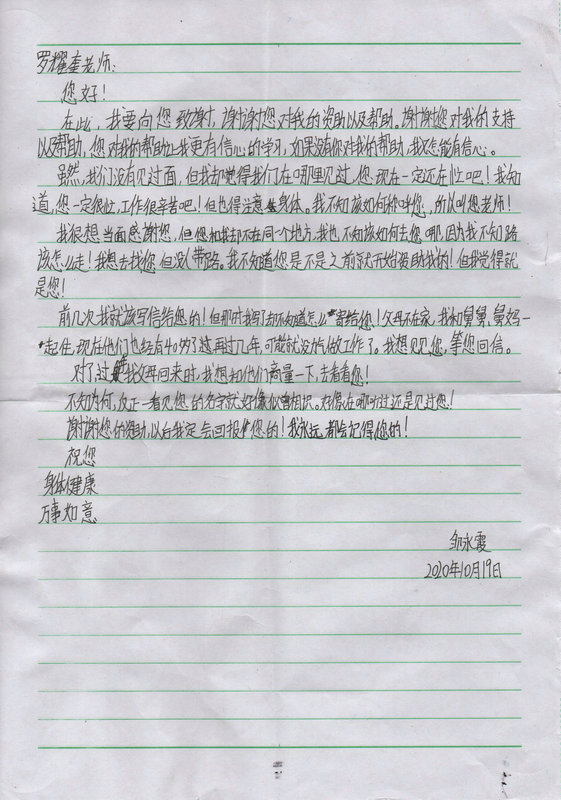 罗耀奎老师：
您好！
在此，我要向您致谢，谢谢您对我的资助以及帮助。谢谢您对我的支持
以及帮助，您对我的帮助让我更有信心的学习，如果没有你对我的帮助，我不怎能有信心。
虽然，我们没有见过面，但我却觉得我们在哪里见过，您现在一定还在忙吧！我知
道，您一定很忙，工作很辛苦吧！但也得注意身体。我不知该如何称呼您，所以叫您老师！
我很想当面感谢您，但您和我却不在同一个地方，我也不知该如何去您哪，因为我不知路
该怎么走！我想去找您但没人带路。我不知道您是不是之前就开始资助我的！但我觉得就
是您！
前几次我就该写信给您的！但那时我写了却不知道怎么寄给您！父母不在家，我和舅舅、舅妈一
起住，现在他们也经有40岁了过再过几年，可能就没办法做工作了。我想见见您，等您回信。
对了，过我父母回来时，我想和他们商量一下，去看看您！
不知为何，反正一看见您的名字就好像似曾相识。好像在哪听过还是见过您！
谢谢您的资助，以后我定会回报您的！我永远都会记得您的！
祝您
身体健康
万事如意
邹永霞
2020年10月19日